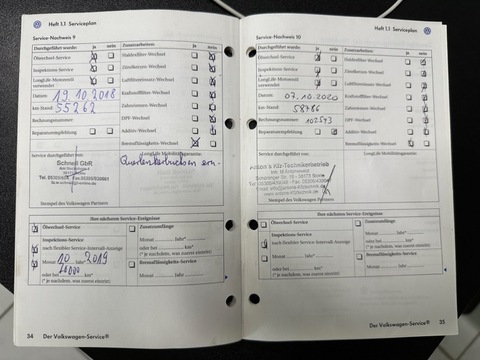 Heft 1.1 Serviceplan
Service-Nachweis 9
Durchgeführt wurde: ja nein
Zusatzarbeiten: ja nein
Ölwechsel-Service
Inspektions-Service
LongLife-Motorenöl verwendet
Datum: 19.10.2018
km-Stand: 55262
Rechnungsnummer:
Reparaturempfehlung
Haldexfilter-Wechsel
Zündkerzen-Wechsel
Luftfiltereinsatz-Wechsel
Kraftstofffilter-Wechsel
Zahnriemen-Wechsel
DPF-Wechsel
Additiv-Wechsel
Bremsflüssigkeits-Wechsel
Service durchgeführt von:
LongLife Mobilitätsgarantie:
Schnell GbR
Stempel des Volkswagen Partners
Ihre nächsten Service-Ereignisse
Ölwechsel-Service
Inspektions-Service
nach flexibler Service-Intervall-Anzeige
Monat 10 Jahr 2019
oder bei km
(je nachdem, was zuerst eintritt)
Zusatzumfänge
Monat Jahr
oder bei km
Bremsflüssigkeits-Service
Monat Jahr
34 Der Volkswagen-Service®
Heft 1.1 Serviceplan
Service-Nachweis 10
Durchgeführt wurde: ja nein
Zusatzarbeiten: ja nein
Ölwechsel-Service
Inspektions-Service
LongLife-Motorenöl verwendet
Datum: 07.10.2020
km-Stand: 58786
Rechnungsnummer: 102543
Reparaturempfehlung
Haldexfilter-Wechsel
Zündkerzen-Wechsel
Luftfiltereinsatz-Wechsel
Kraftstofffilter-Wechsel
Zahnriemen-Wechsel
DPF-Wechsel
Additiv-Wechsel
Bremsflüssigkeits-Wechsel
Service durchgeführt von:
LongLife Mobilitätsgarantie:
Kfz-Technikerbetrieb
Stempel des Volkswagen Partners
Ihre nächsten Service-Ereignisse
Ölwechsel-Service
Inspektions-Service
nach flexibler Service-Intervall-Anzeige
Monat Jahr
oder bei km
(je nachdem, was zuerst eintritt)
Zusatzumfänge
Monat Jahr
oder bei km
Bremsflüssigkeits-Service
Monat Jahr
Der Volkswagen-Service® 35